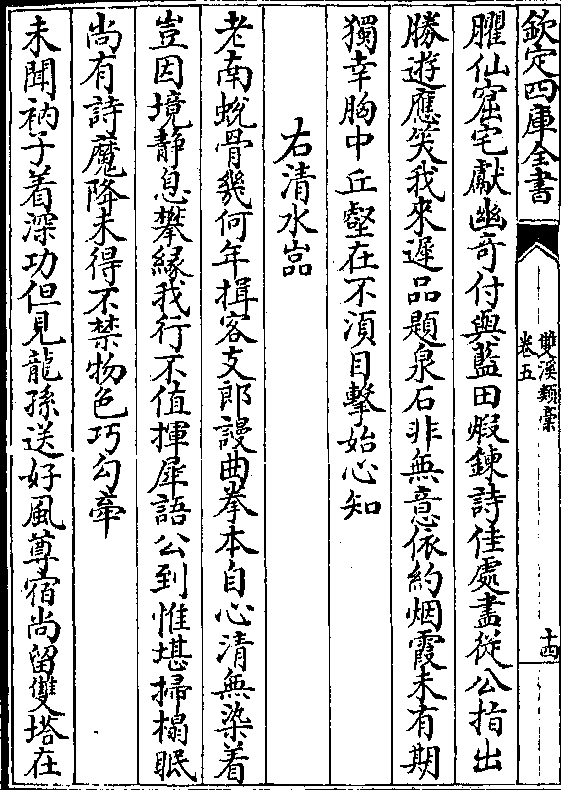 欽定四庫全書
雙溪類藁
卷五
十四
臞仙窟宅獻幽奇付與藍田煆鍊詩佳處盡從公拈出
勝遊應笑我來遲品題泉石非無意依約烟霞未有期
獨幸胸中丘壑在不湏目擊始心知
右清水嵓
老南蛻骨幾何年揖客支郎謾曲拳本自心清無染着
豈因境静息攀緣我行不值揮犀語公到惟堪掃榻眠
尚有詩魔降未得不禁物色巧勾牽
未聞衲子着深功但見龍孫送好風尊宿尚留雙塔在